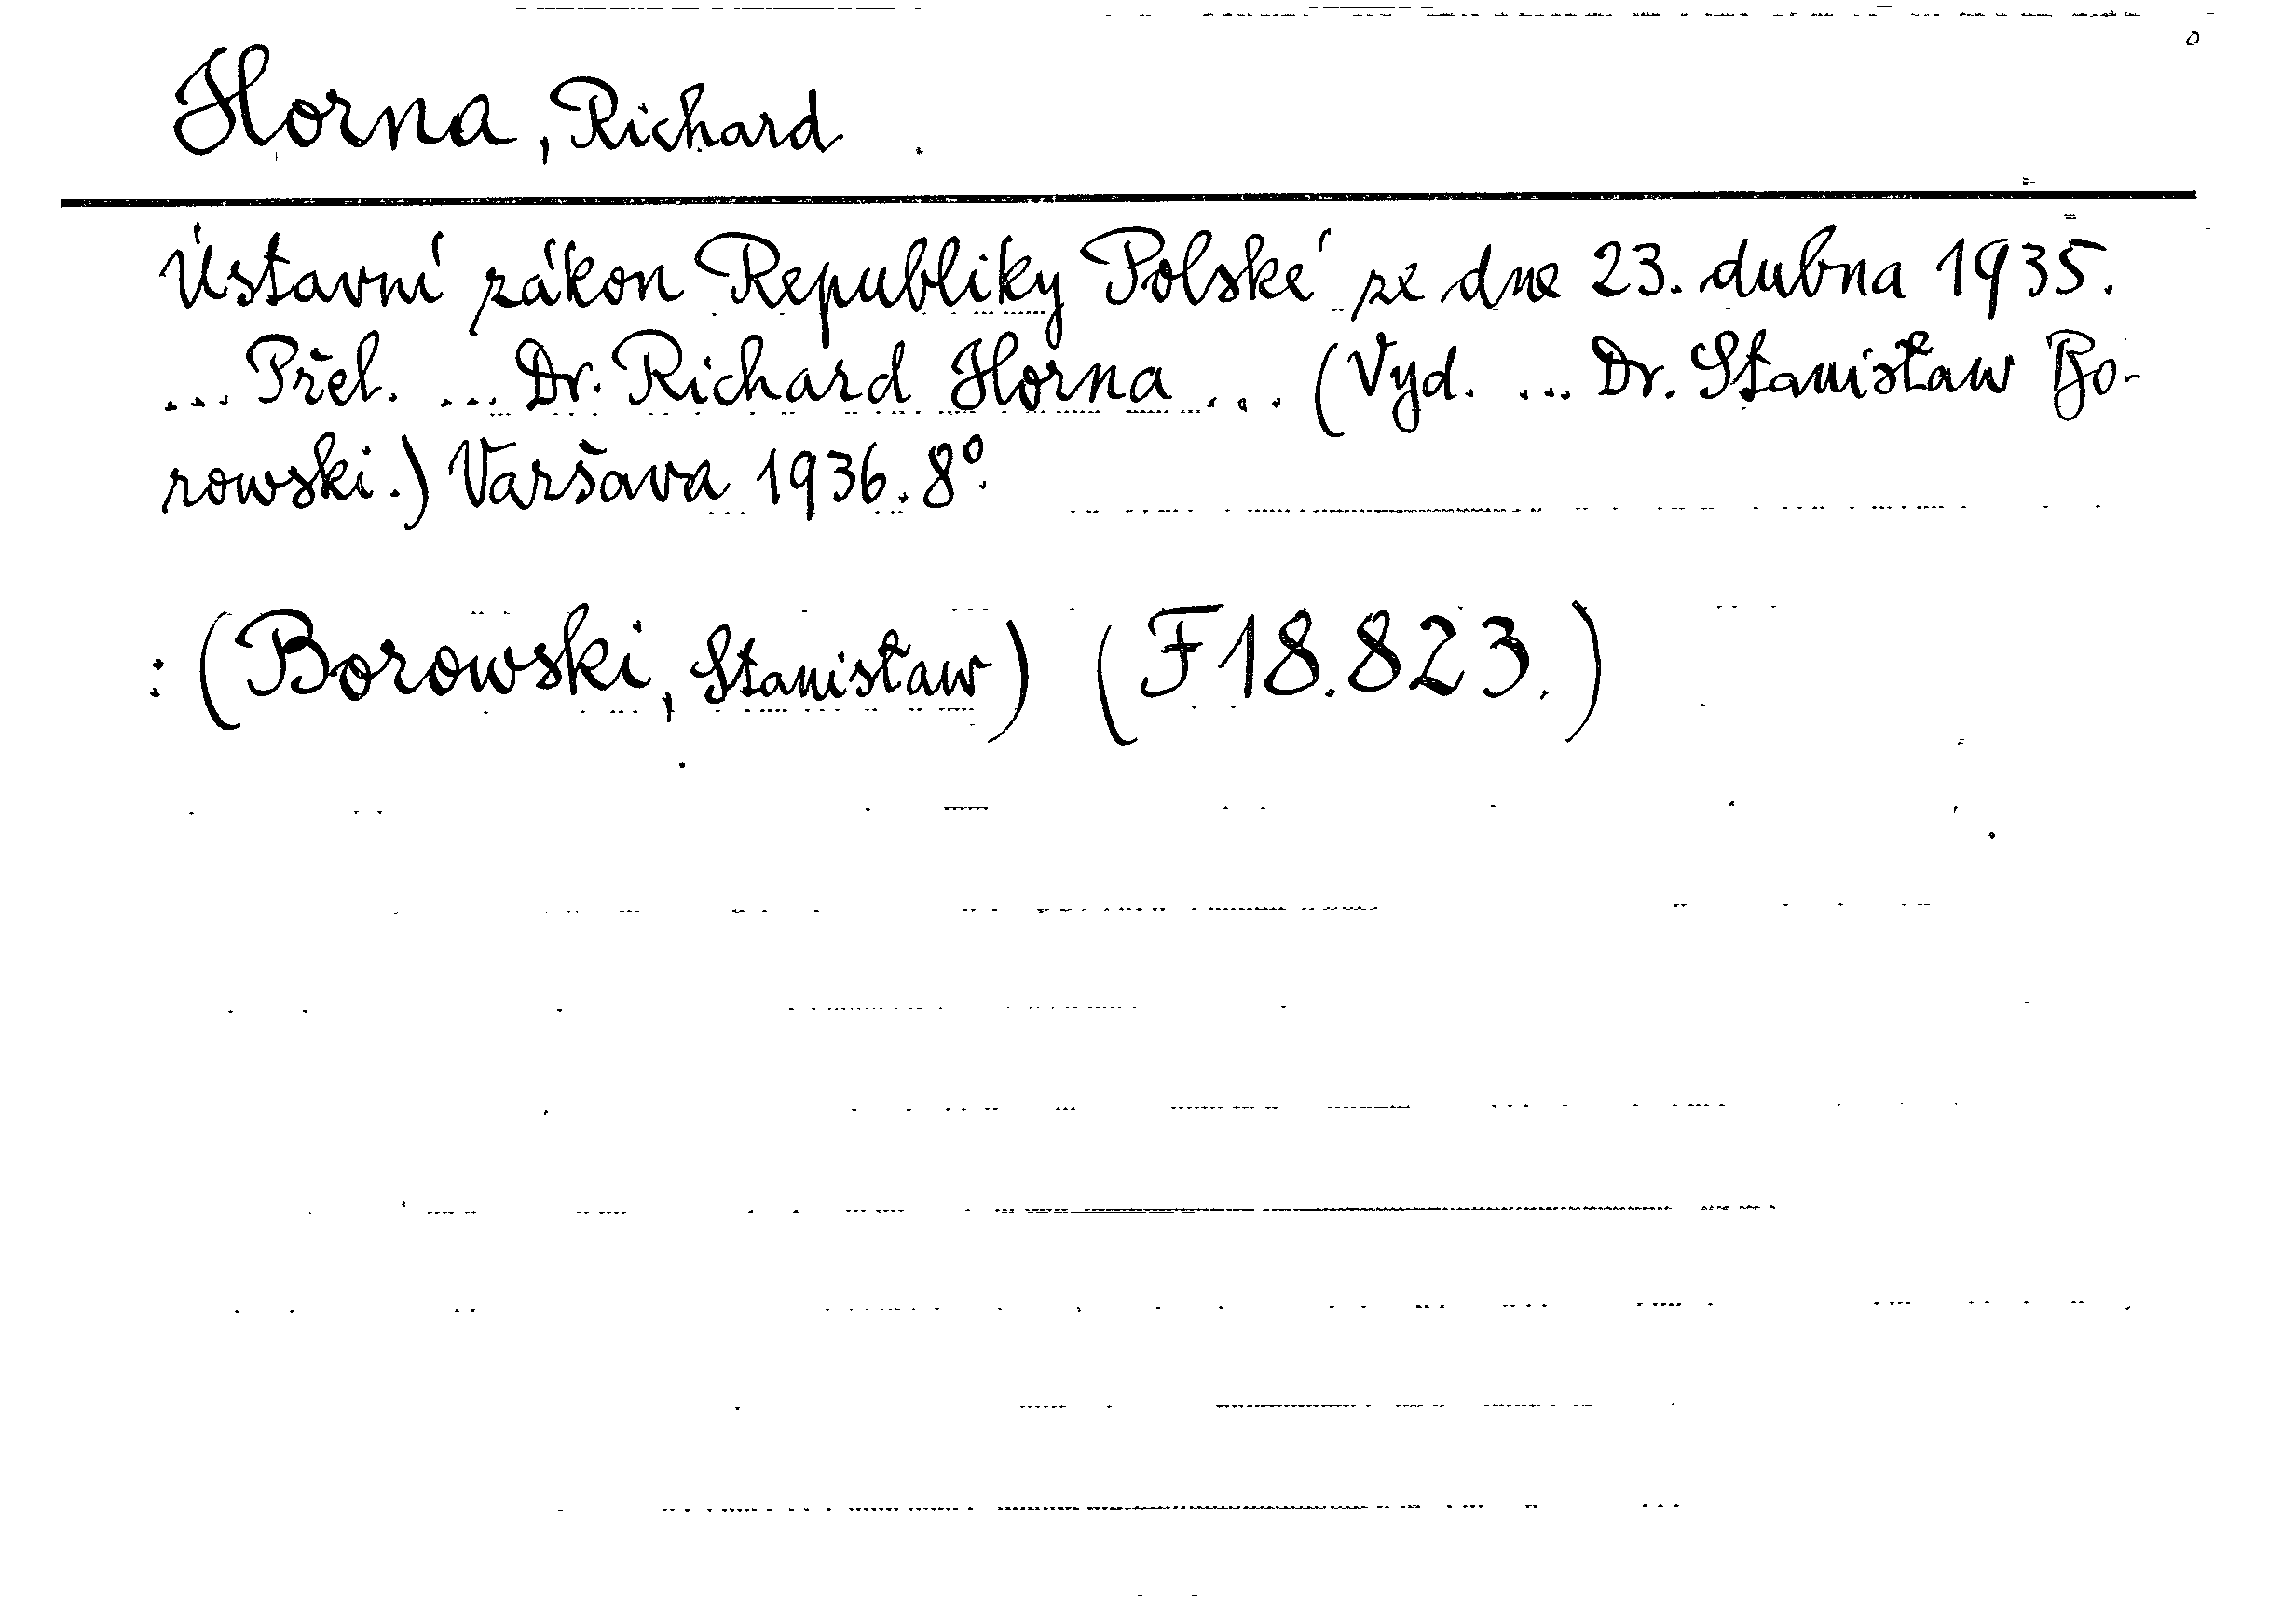 Horna, Richard
Ústavní zákon Republiky Polské ze dne 23. dubna 1935.
... Přel. ... Dr. Richard Horna ... (Vyd. ... Dr. Stanisław Bo-
rowski.) Varšava 1936. 8º.
: (Borowski, Stanisław) (F 18.823.)